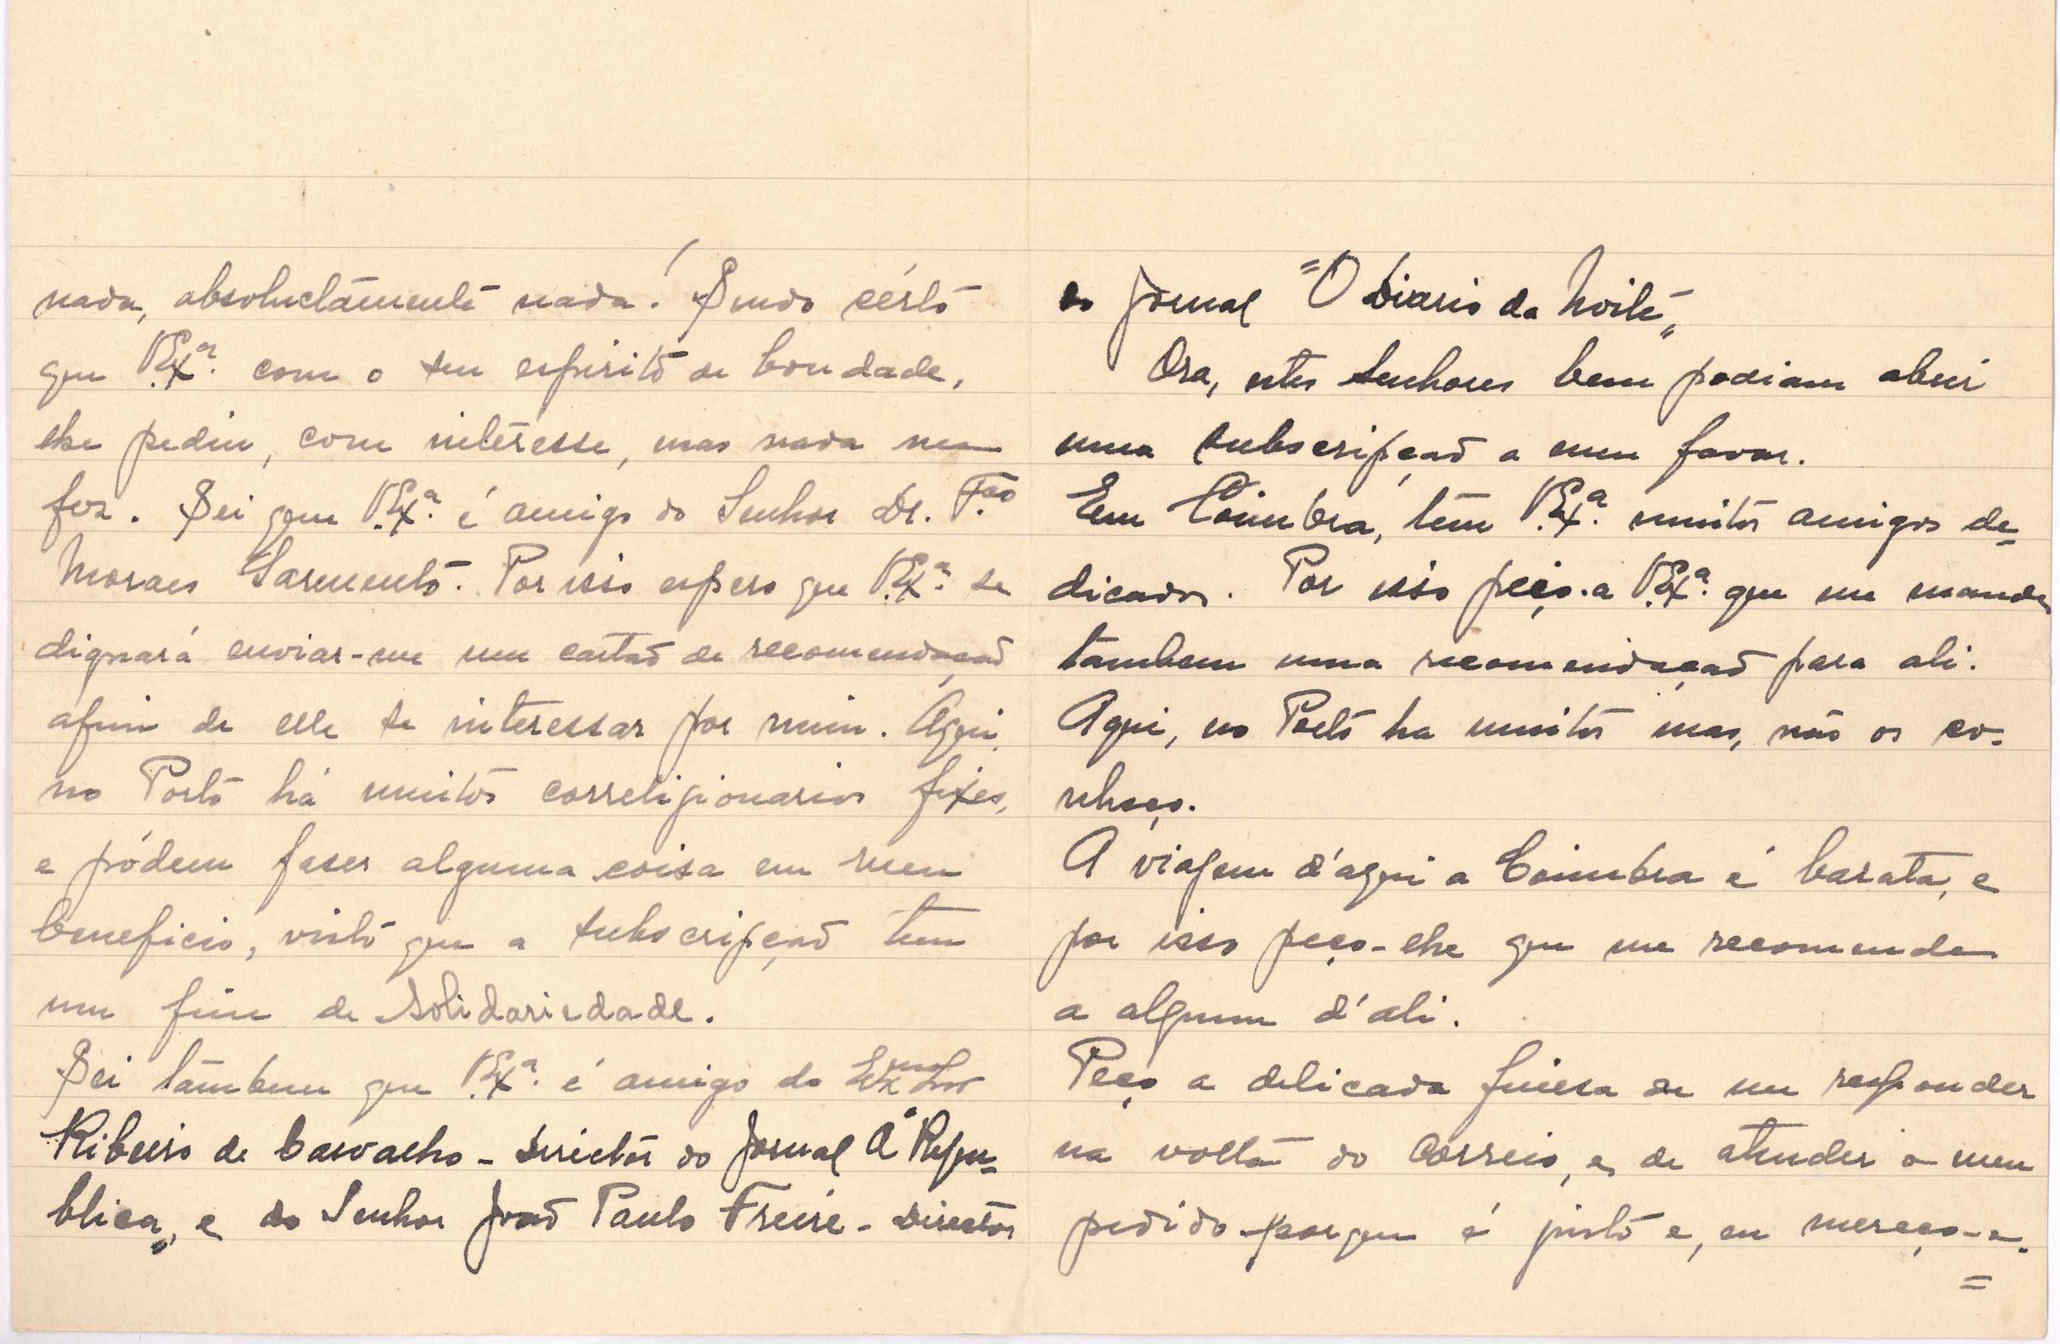 nada, absoluctâmente nada! Sendo cérto
que V.Exª. com o seu espirito de bondade,
lhe pediu, com interesse, mas nada me
fez. Sei que V.Exª. é amigo do Senhor Dr. F.co
Moraes Sarmento. Por isso espero que V.Exª. se
dignará enviar-me um cartaõ de recomendaçaõ
afim de elle se interessar por mim. Aqui,
no Porto há muitos correligionarios fixes,
e pódem faser alguma coisa em meu
beneficio, visto que a subscripçaõ tem
um fim de Solidariedade.
Sei tâmbem que V.Exª. é amigo do Exmo Snr
Ribeiro de Carvalho - Director do Jornal "A Repu=
blica", e do Senhor Joaõ Paulo Freire - Director
do Jornal "O Diario da Noite"
Ora, estes Senhores bem podiam abrir
uma subscripçaõ a meu favor.
Em Coimbra, tem V.Exª. muitos amigos de=
dicados. Por isso peço-a V.Exª. que me mande
tambem uma recomendaçaõ para ali.
Aqui, no Porto ha muitos mas, não os co=
nheço.
A viagem d'aqui a Coimbra é barata, e
por isso peço-lhe que me recomende
a algum d'ali.
Peço a delicada finesa de me responder
na volta do Correio, e de atender o meu
pedido porque é justo e, eu mereço-o.
=